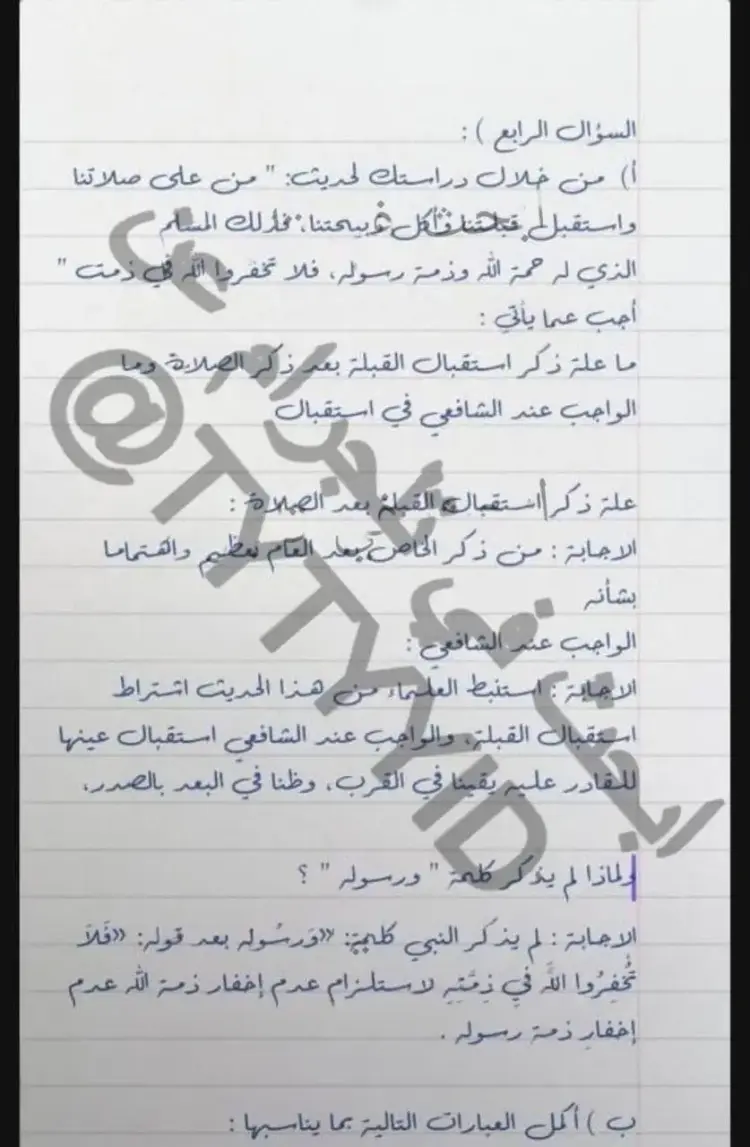 السؤال الرابع ) :
أ) من خلال دراستك لحديث: " من على صلاتنا
واستقبل قبلتنا وأكل ذبيحتنا، فذلك المسلم
الذي له حمة الله وذمة رسوله، فلا تخفروا الله في ذمت "
أجب عما يأتي :
ما علة ذكر استقبال القبلة بعد ذكر الصلاة وما
الواجب عند الشافعي في استقبال
علة ذكر استقبال القبلة بعد الصلاة :
الاجابة : من ذكر الخاص بعد العام تعظيم واهتماما
بشأنه
الواجب عند الشافعي :
الاجابة : استنبط العلماء من هذا الحديث اشتراط
استقبال القبلة، والواجب عند الشافعي استقبال عينها
للقادر عليه يقينا في القرب، وظنا في البعد بالصدر،
ولماذا لم يذكر كلمة " ورسوله " ؟
الاجابة : لم يذكر النبي كلمة: «وَرسُوله بعد قوله: «فَلاَ
تُخْفِرُوا اللَّه فِي ذِمَّتِهِ لاستلزام عدم إخفار ذمة الله عدم
إخفار ذمة رسوله .
ب ) أكمل العبارات التالية بما يناسبها :
ابحث في تلجرام عن
@TYTYYID